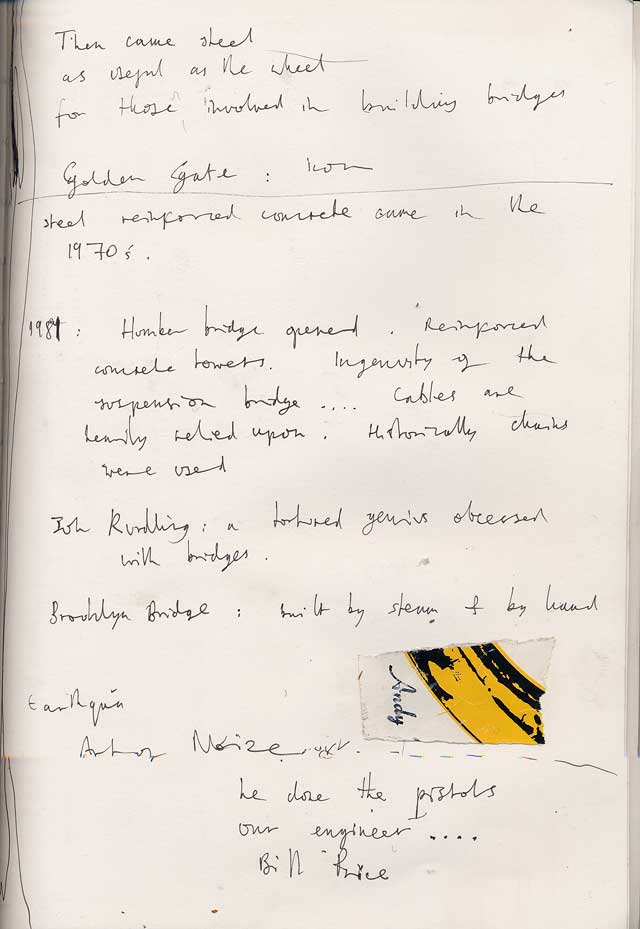 Then came steel
as useful as the wheel
for those involved in building bridges
Golden Gate : icon
steel reinforced concrete came in the
1970s.
1981 : Humber bridge opened . Reinforced
concrete towers. Ingenuity of the
suspension bridge .... Cables are
heavily relied upon . Historically chains
were used
: a tortured genius obsessed
with bridges .
Brooklyn Bridge : built by steam & by hand
Andy
Art of Noize
he done the pistols
our engineer ....
Bill Price